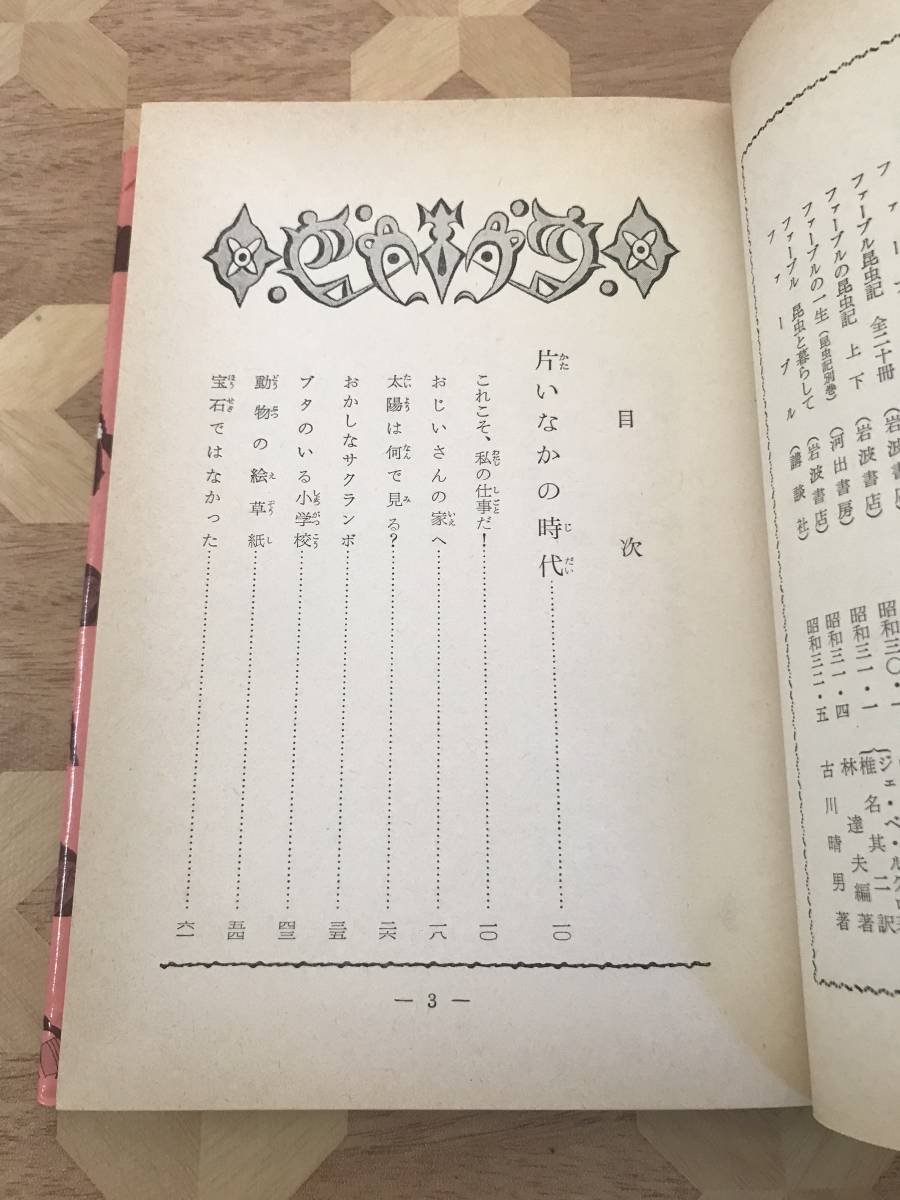 ファーブル昆虫記 全二十冊 (岩波書店) 昭和三〇・一
ファーブルの昆虫記 上下 (岩波書店) 昭和三一・一
ファーブルの一生(昆虫記別巻) (河出書房) 昭和三一・四 林達夫編著
ファーブル 昆虫と暮らして (岩波書店) 昭和三一・五
ファーブル (講談社) 古川晴男著
目次
片いなかの時代 一〇
これこそ、私の仕事だ! 一〇
おじいさんの家へ 一八
太陽は何で見る? 二六
おかしなサクランボ 三五
ブタのいる小学校 四三
動物の絵草紙 五四
宝石ではなかった 六一
— 3 —